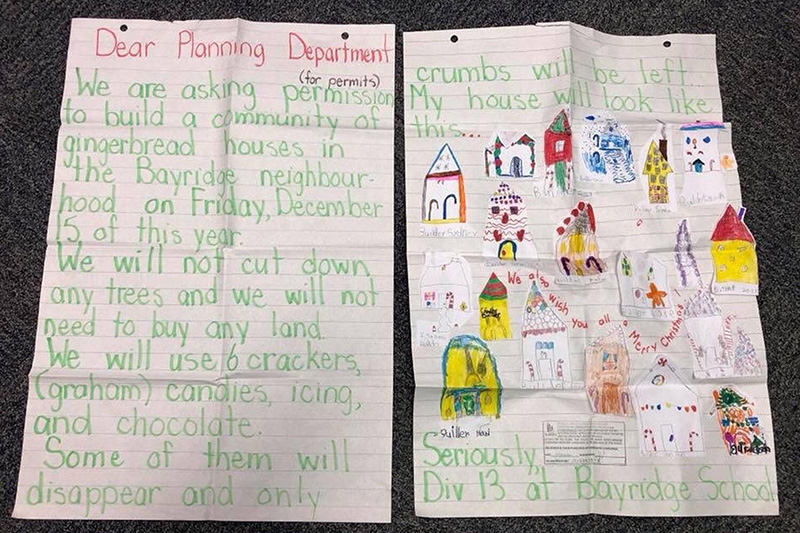 Dear Planning Department
(for permits)
We are asking permission
to build a community of
gingerbread houses in
the Bayridge neighbour-
hood on Friday, December
15 of this year.
We will not cut down
any trees and we will not
need to buy any land.
We will use 6 crackers,
(graham) candies, icing,
and chocolate.
Some of them will
disappear and only
crumbs will be left.
My house will look like
this...
Builder Sydney
We also wish you all a Merry Christmas!
Seriously,
Div 13 at Bayridge School